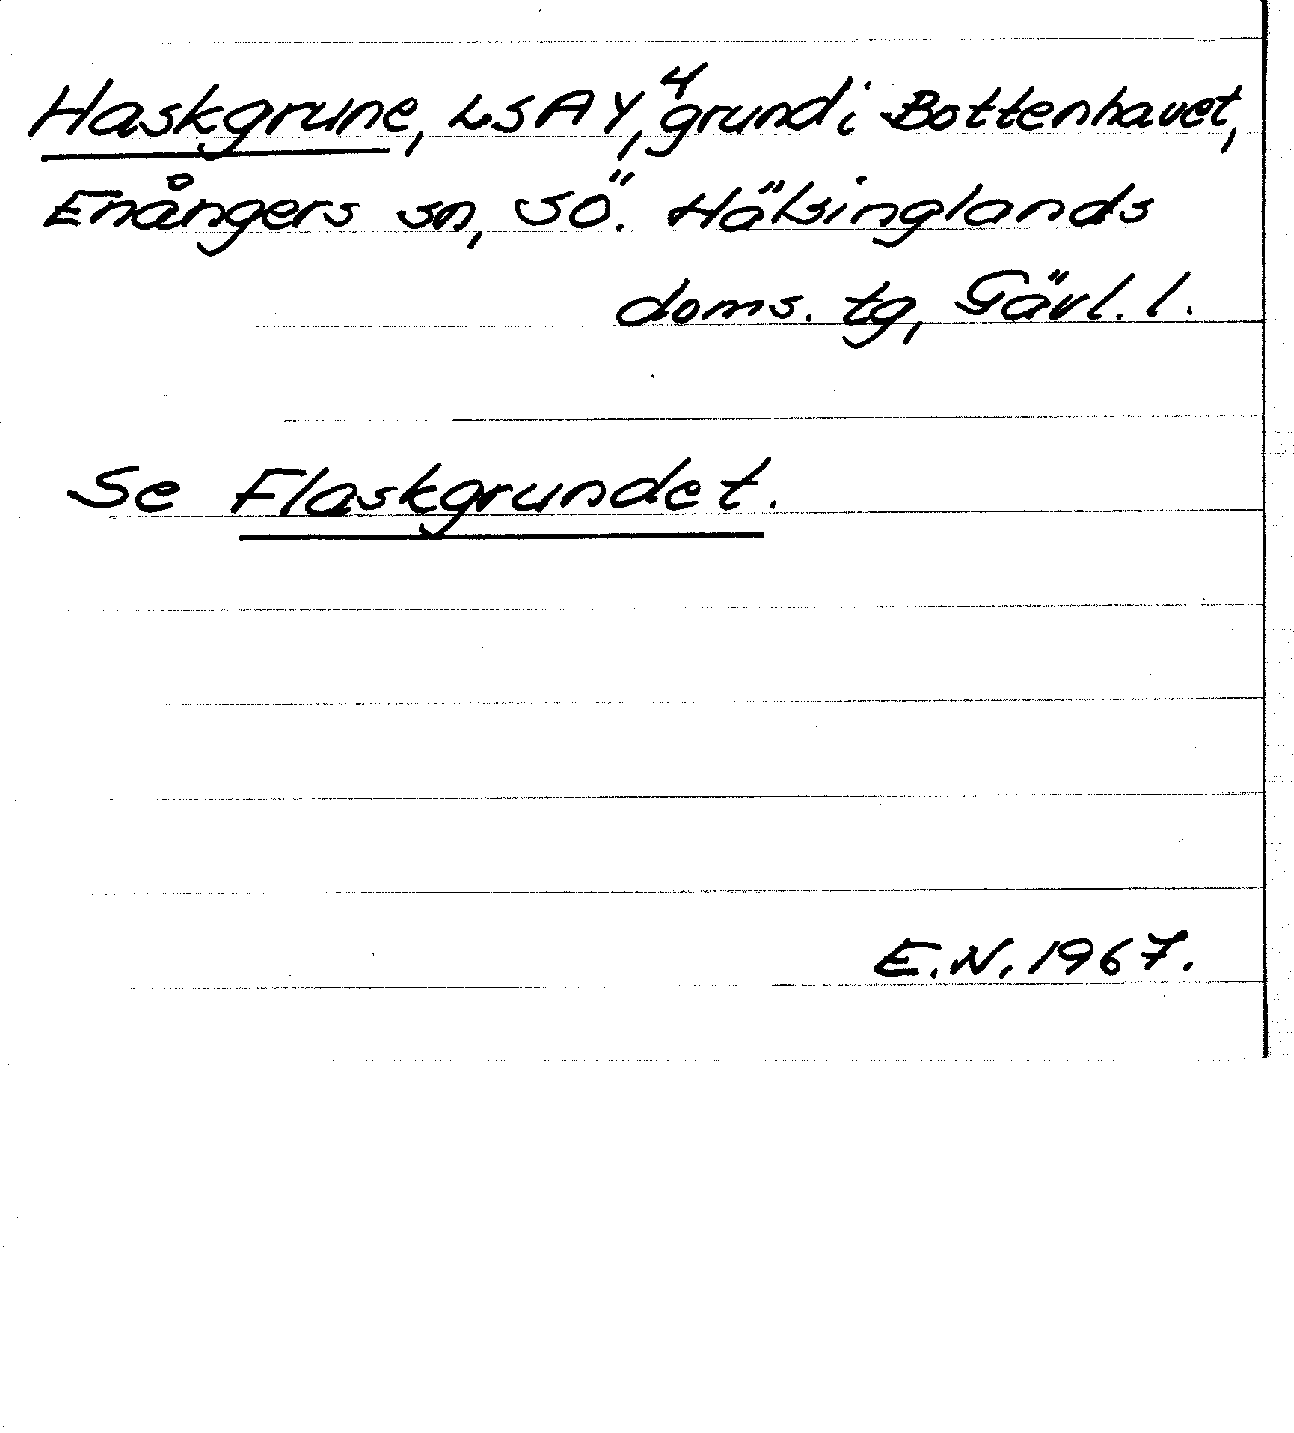 Haskgrune, LSA Y,⁴ grund i Bottenhavet,
Enångers sn, SÖ. Hälsinglands
doms. tg, Gävl. l.
Se Flaskgrundet.
E.N. 1967.